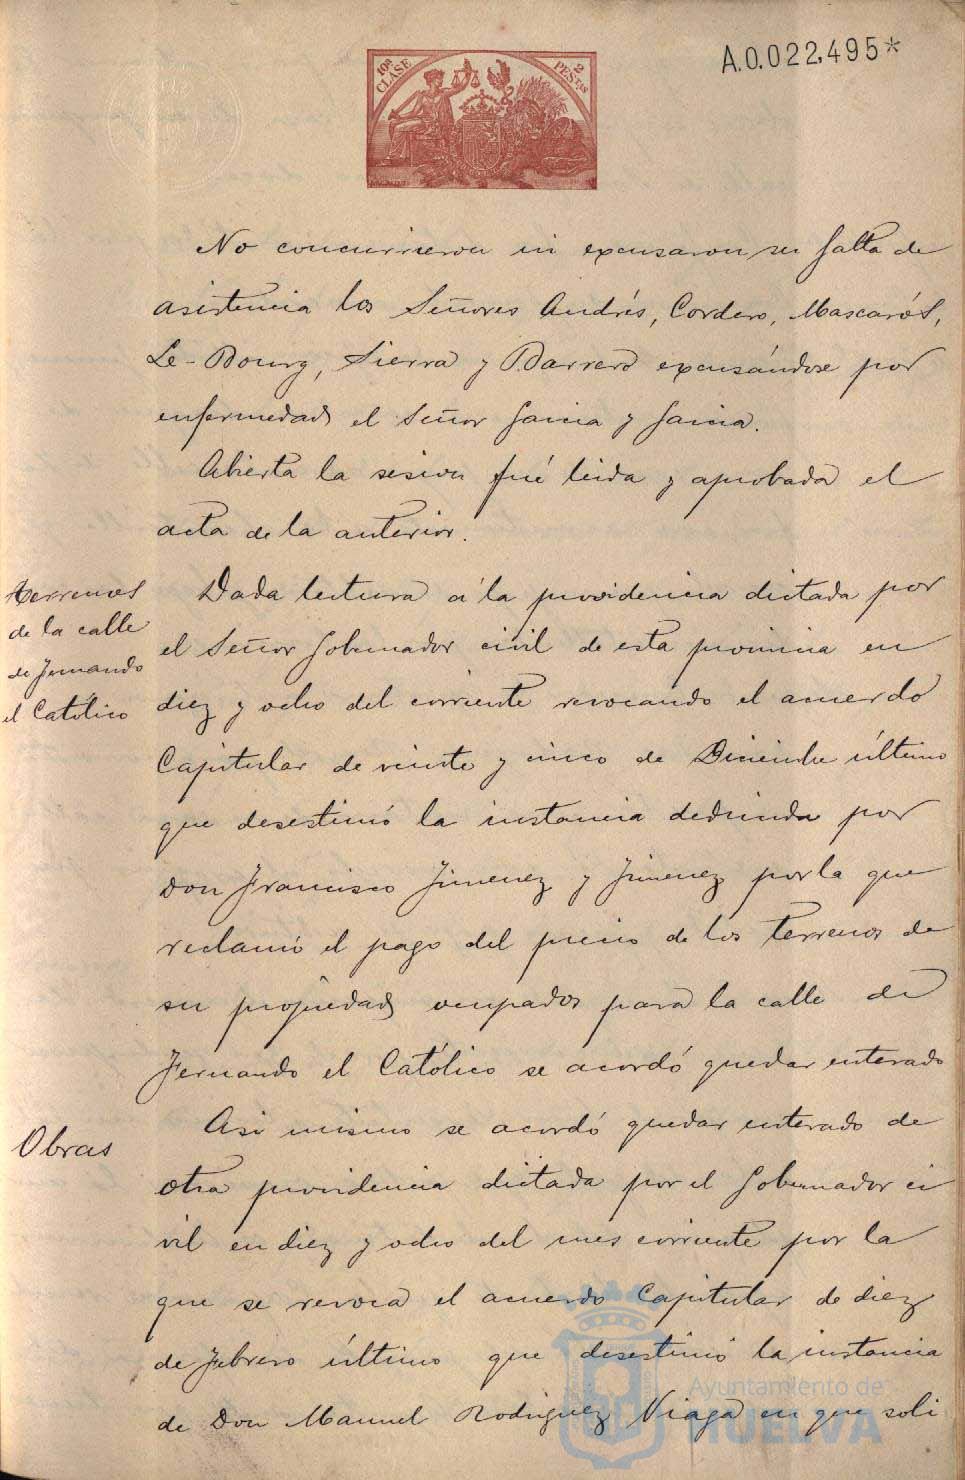 A.0.022,495*
10ª CLASE
2 PESTAS
No concurrieron ni excusaron su falta de
asistencia los Señores Andrés, Cordero, Mascarós,
Le-Bourg, Sierra y Barrero excusándose por
enfermedad el Señor Garcia y Garcia.
Abierta la sesion fué leida y aprobada el
acta de la anterior.
Terrenos
de la calle
de Fernando
el Católico
Dada lectura á la providencia dictada por
el Señor Gobernador civil de esta provincia en
diez y ocho del corriente revocando el acuerdo
Capitular de veinte y cinco de Diciembre último
que desestimó la instancia deducida por
Don Francisco Jimenez y Jimenez por la que
reclamó el pago del precio de los terrenos de
su propiedad ocupados para la calle de
Fernando el Católico se acordó quedar enterado
Obras
Asi mismo se acordó quedar enterado de
otra providencia dictada por el Gobernador ci
vil en diez y ocho del mes corriente por la
que se revoca el acuerdo Capitular de diez
de Febrero último que desestimó la instancia
de Don Manuel Rodriguez Viaga en que soli
Ayuntamiento de
HUELVA